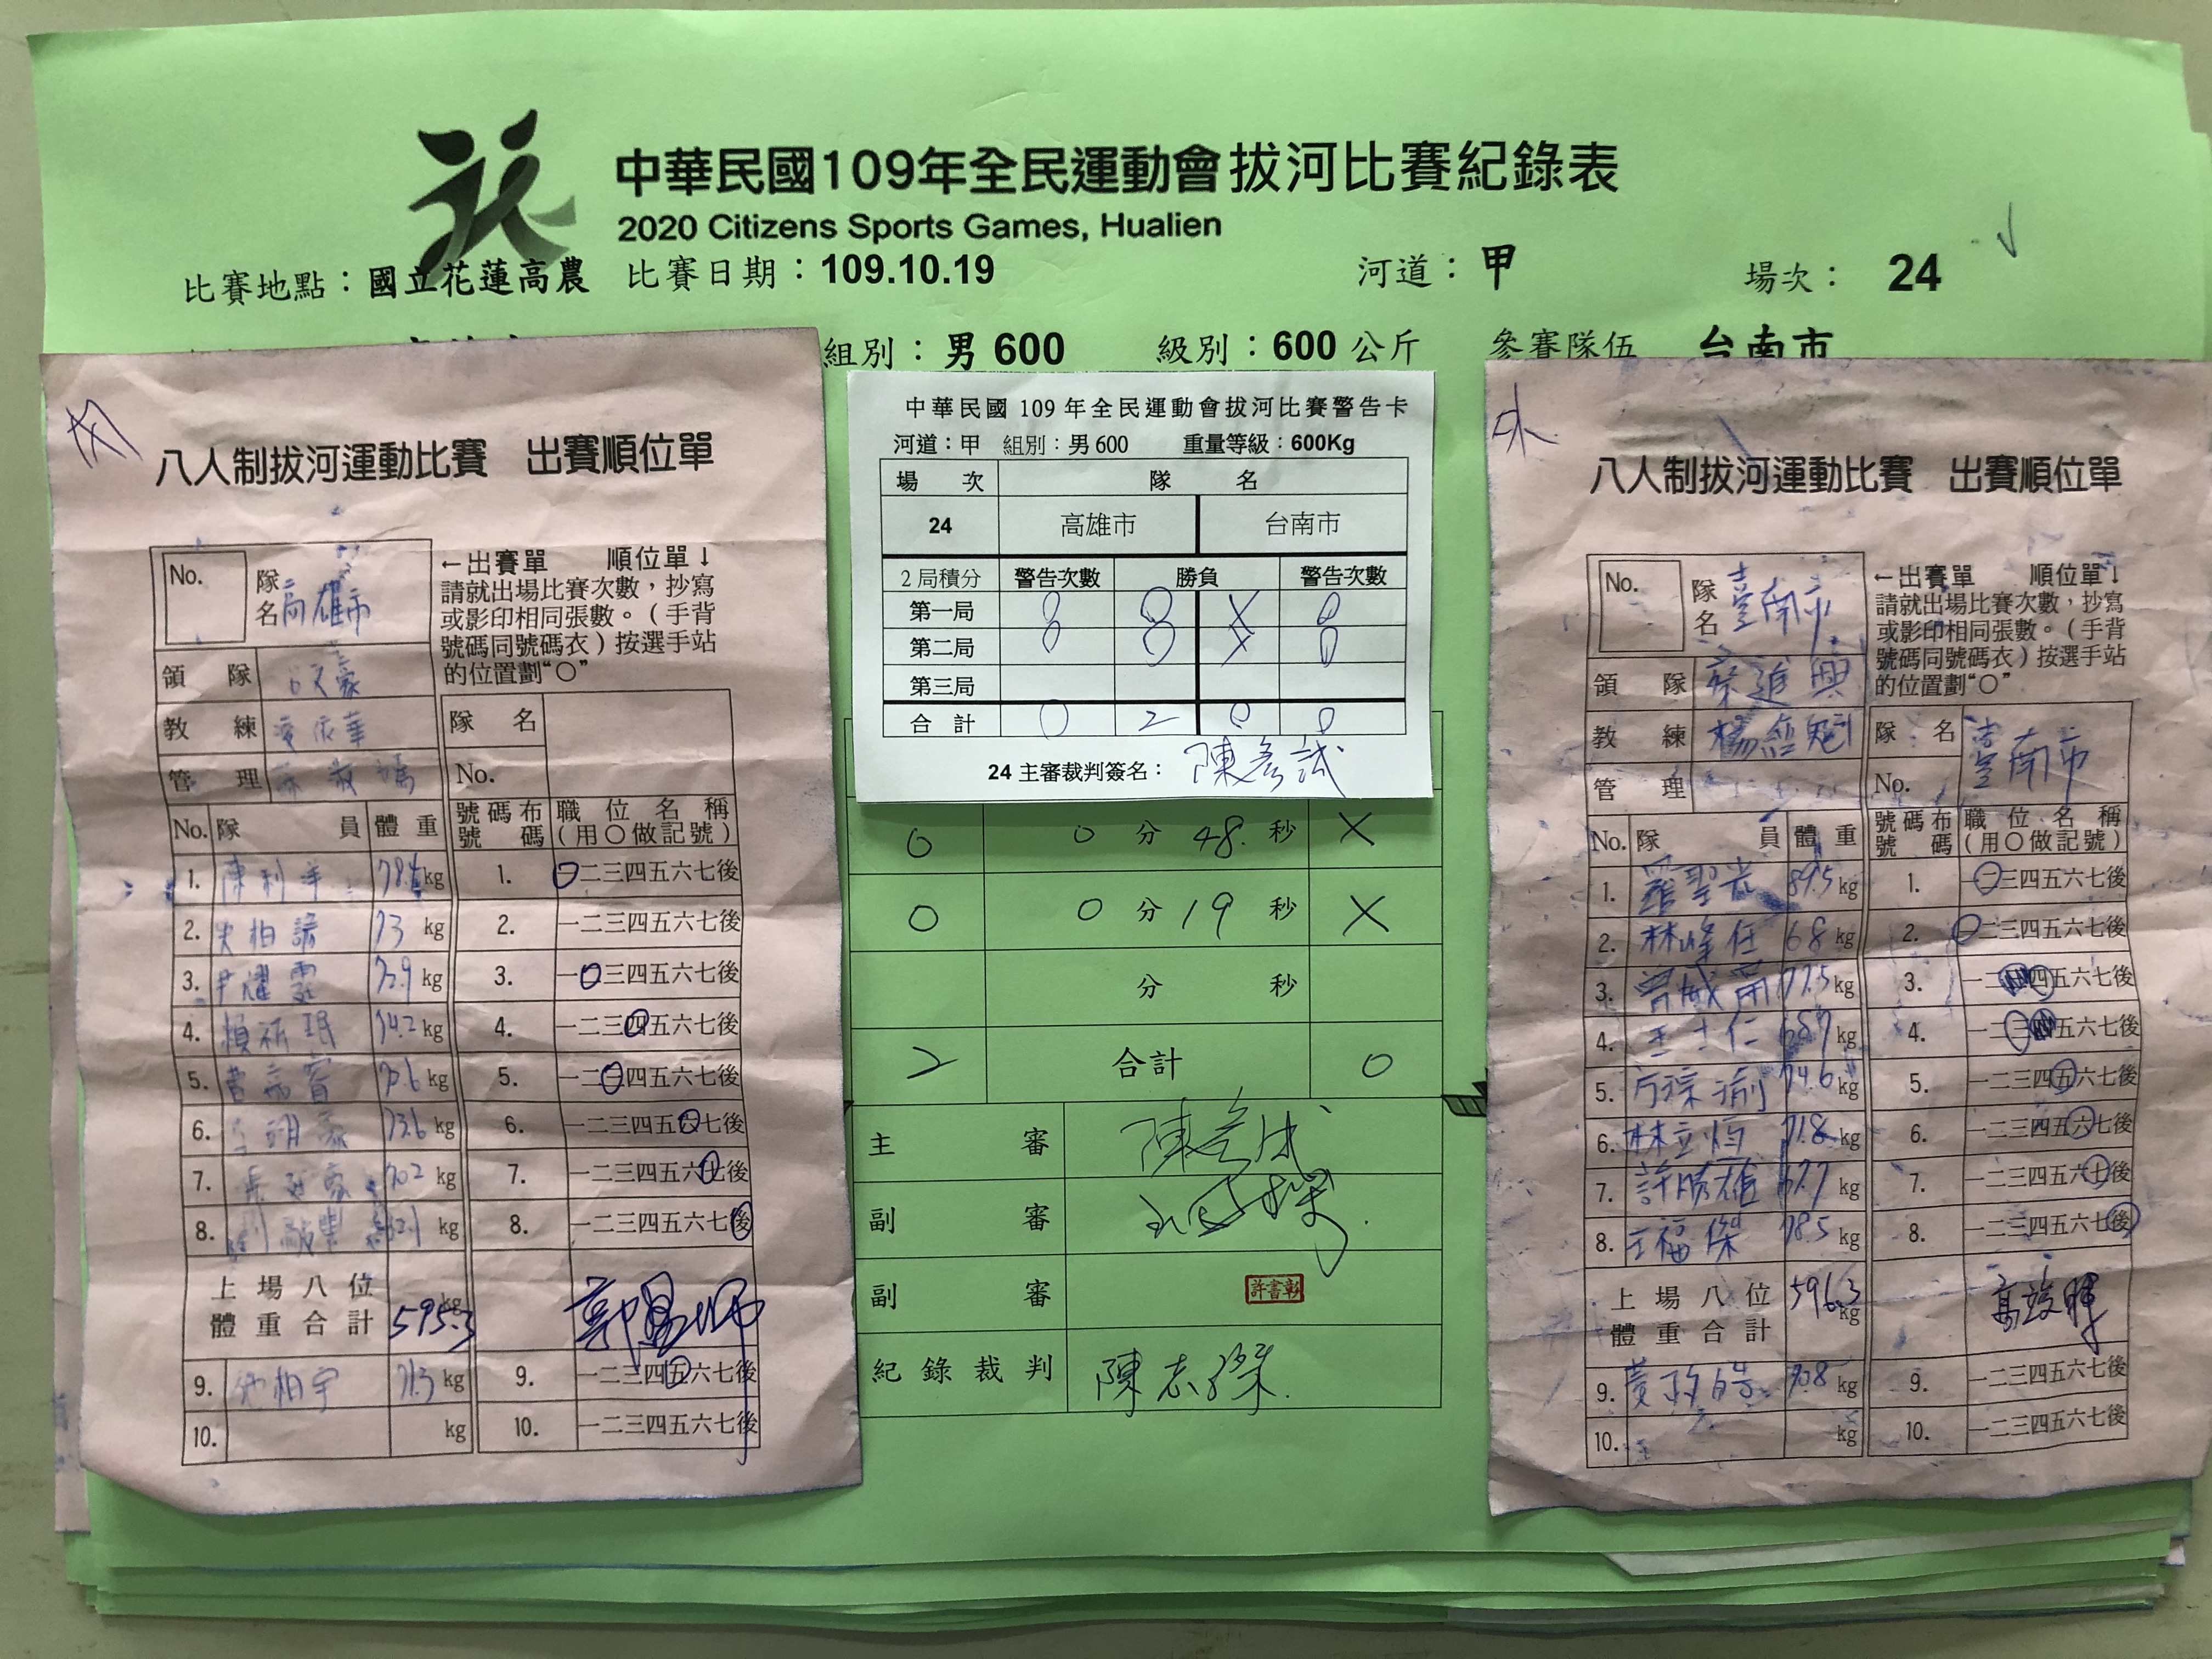 中華民國109年全民運動會拔河比賽紀錄表
2020 Citizens Sports Games, Hualien
比賽地點：國立花蓮高農 比賽日期：109.10.19 河道：甲 場次： 24
組別：男 600 級別：600 公斤 參賽隊伍 台南市
八人制拔河運動比賽 出賽順位單
No. 隊名 高雄市
←出賽單 順位單↓
請就出場比賽次數，抄寫
或影印相同張數。（手背
號碼同號碼衣）按選手站
的位置劃“○”
領隊
教練
管理
隊名
No.
No. 隊員 體重 號碼布號碼 職位名稱（用○做記號）
1. kg 1. 一二三四五六七後
2. 73 kg 2. 一二三四五六七後
3. kg 3. 一二三四五六七後
4. 74.2 kg 4. 一二三四五六七後
5. kg 5. 一二三四五六七後
6. 73.6 kg 6. 一二三四五六七後
7. kg 7. 一二三四五六七後
8. kg 8. 一二三四五六七後
上場八位
體重合計 595.3 kg
9. 柏宇 71.3 kg 9. 一二三四五六七後
10. kg 10. 一二三四五六七後
中華民國 109 年全民運動會拔河比賽警告卡
河道：甲 組別：男 600 重量等級：600Kg
場次 隊名
24 高雄市 台南市
2局積分 警告次數 勝負 警告次數
第一局 0 0 X 0
第二局 0 0 X 0
第三局
合計 0 2 0 0
24 主審裁判簽名：
0 0 分 48 秒 X
0 0 分 19 秒 X
分 秒
2 合計 0
主審
副審
副審 許書彰
紀錄裁判 陳志傑
八人制拔河運動比賽 出賽順位單
No. 隊名 臺南市
←出賽單 順位單↓
請就出場比賽次數，抄寫
或影印相同張數。（手背
號碼同號碼衣）按選手站
的位置劃“○”
領隊 蔡進興
教練 楊
管理
隊名 臺南市
No.
No. 隊員 體重 號碼布號碼 職位名稱（用○做記號）
1. 羅聖 kg 1. 一二三四五六七後
2. 林峰任 68 kg 2. 一二三四五六七後
3. 77.5 kg 3. 一二三四五六七後
4. 王士仁 68.7 kg 4. 一二三四五六七後
5. 74.6 kg 5. 一二三四五六七後
6. 林立 71.8 kg 6. 一二三四五六七後
7. 許勝雄 67.7 kg 7. 一二三四五六七後
8. 王福傑 78.5 kg 8. 一二三四五六七後
上場八位
體重合計 596.3 kg
9. 70.8 kg 9. 一二三四五六七後
10. kg 10. 一二三四五六七後